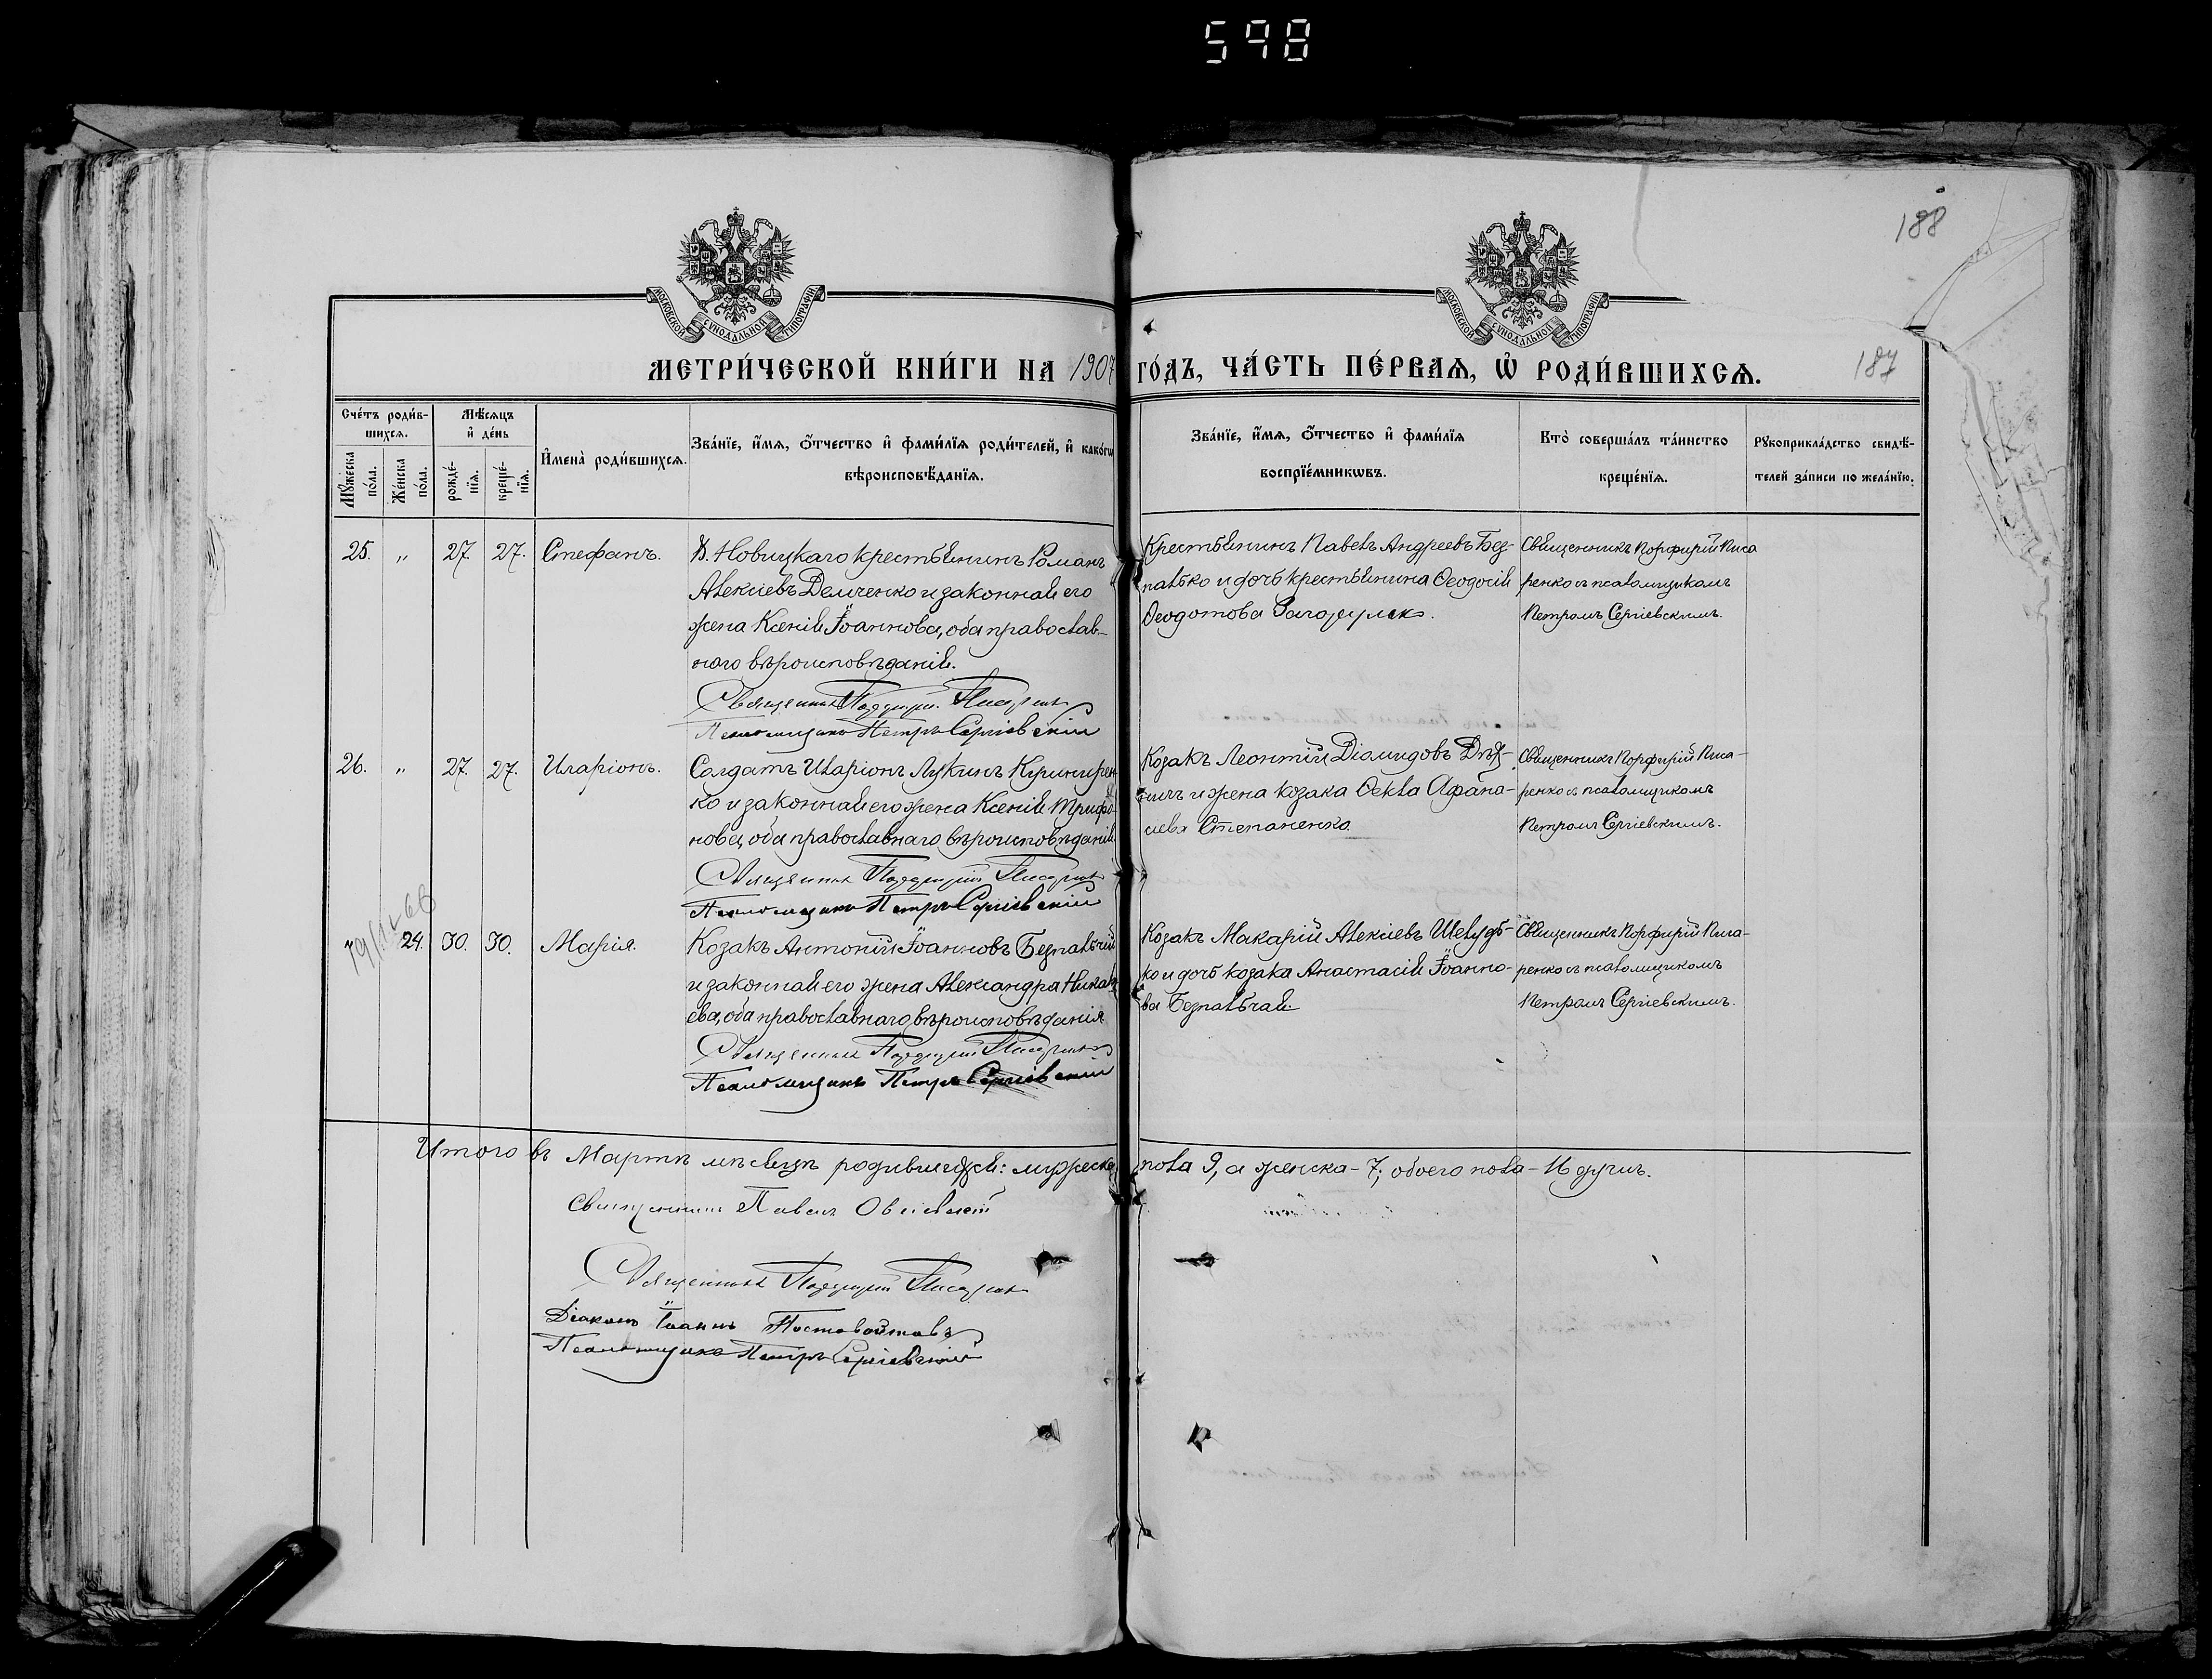 598
188
МОСКОВСКОЙ СѴНОДАЛЬНОЙ ТИПОГРАФІИ
МОСКОВСКОЙ СѴНОДАЛЬНОЙ ТИПОГРАФІИ
МЕТРИ́ЧЕСКОЙ КНИ́ГИ НА 1907 ГО́ДЪ, ЧА́СТЬ ПЕ́РВАѦ, Ѡ҆ РОДИ́ВШИХСѦ.
187
Сче́тъ роди́в-
шихсѧ.
Мѣ́сѧцъ
и҆ де́нь
Мꙋ́жеска
по́ла.
Же́нска
по́ла.
рожде́-
нїѧ.
креще́-
нїѧ.
И҆мена̀ роди́вшихсѧ.
Зва́нїе, и҆́мѧ, ѻ҆́тчество и҆ фами́лїѧ роди́телей, и҆ како́гѡ
вѣроисповѣ́данїѧ.
Зва́нїе, и҆́мѧ, ѻ҆́тчество и҆ фами́лїѧ
воспрїе́мникѡвъ.
Кто̀ соверша́лъ та́инство
креще́нїѧ.
Рꙋкоприкла́дство свидѣ́-
телей за́писи по жела́нїю.
25. „ 27. 27. Стефанъ.
Д. Новицкаго крестьянинъ Романъ
Алексіевъ Демченко и законная его
жена Ксенія Іоаннова, оба православ-
наго вѣроисповѣданія.
Священникъ Порфирій Писаренко
Псаломщикъ Петръ Сергіевскій
Крестьянинъ Павелъ Андреевъ Без-
палько и дочь крестьянина Ѳеодосія
Ѳеодотова
Священникъ Порфирій Писа
ренко съ псаломщикомъ
Петромъ Сергіевскимъ.
26. „ 27. 27. Иларіонъ.
Солдатъ Иларіонъ Лукинъ
ко и законная его жена Ксенія Трифо-
нова, оба православнаго вѣроисповѣданія
Священникъ Порфирій Писаренко
Псаломщикъ Петръ Сергіевскій
Козакъ Леонтій Діомидовъ
и жена козака Ѳекла Афана-
сіева Степаненко.
Священникъ Порфирій Писа-
ренко съ псаломщикомъ
Петромъ Сергіевскимъ.
24. 30. 30. Марія.
Козакъ Антоній Іоанновъ Безпальчій
и законная его жена Александра
ева, оба православнаго вѣроисповѣданія
Священникъ Порфирій Писаренко
Псаломщикъ Петръ Сергіевскій
Козакъ Макарій Алексіевъ Шелудь-
ко и дочь козака Анастасія Іоанно-
ва Безпальчая.
Священникъ Порфирій Писа-
ренко съ псаломщикомъ
Петромъ Сергіевскимъ.
Итого въ Мартѣ мѣсяцѣ родившихся: мужеска пола 9, а женска - 7; обоего пола - 16 душъ.
Священникъ Павелъ
Священникъ Порфирій Писаренко
Діаконъ Іоаннъ Постовойтовъ
Псаломщикъ Петръ Сергіевскій